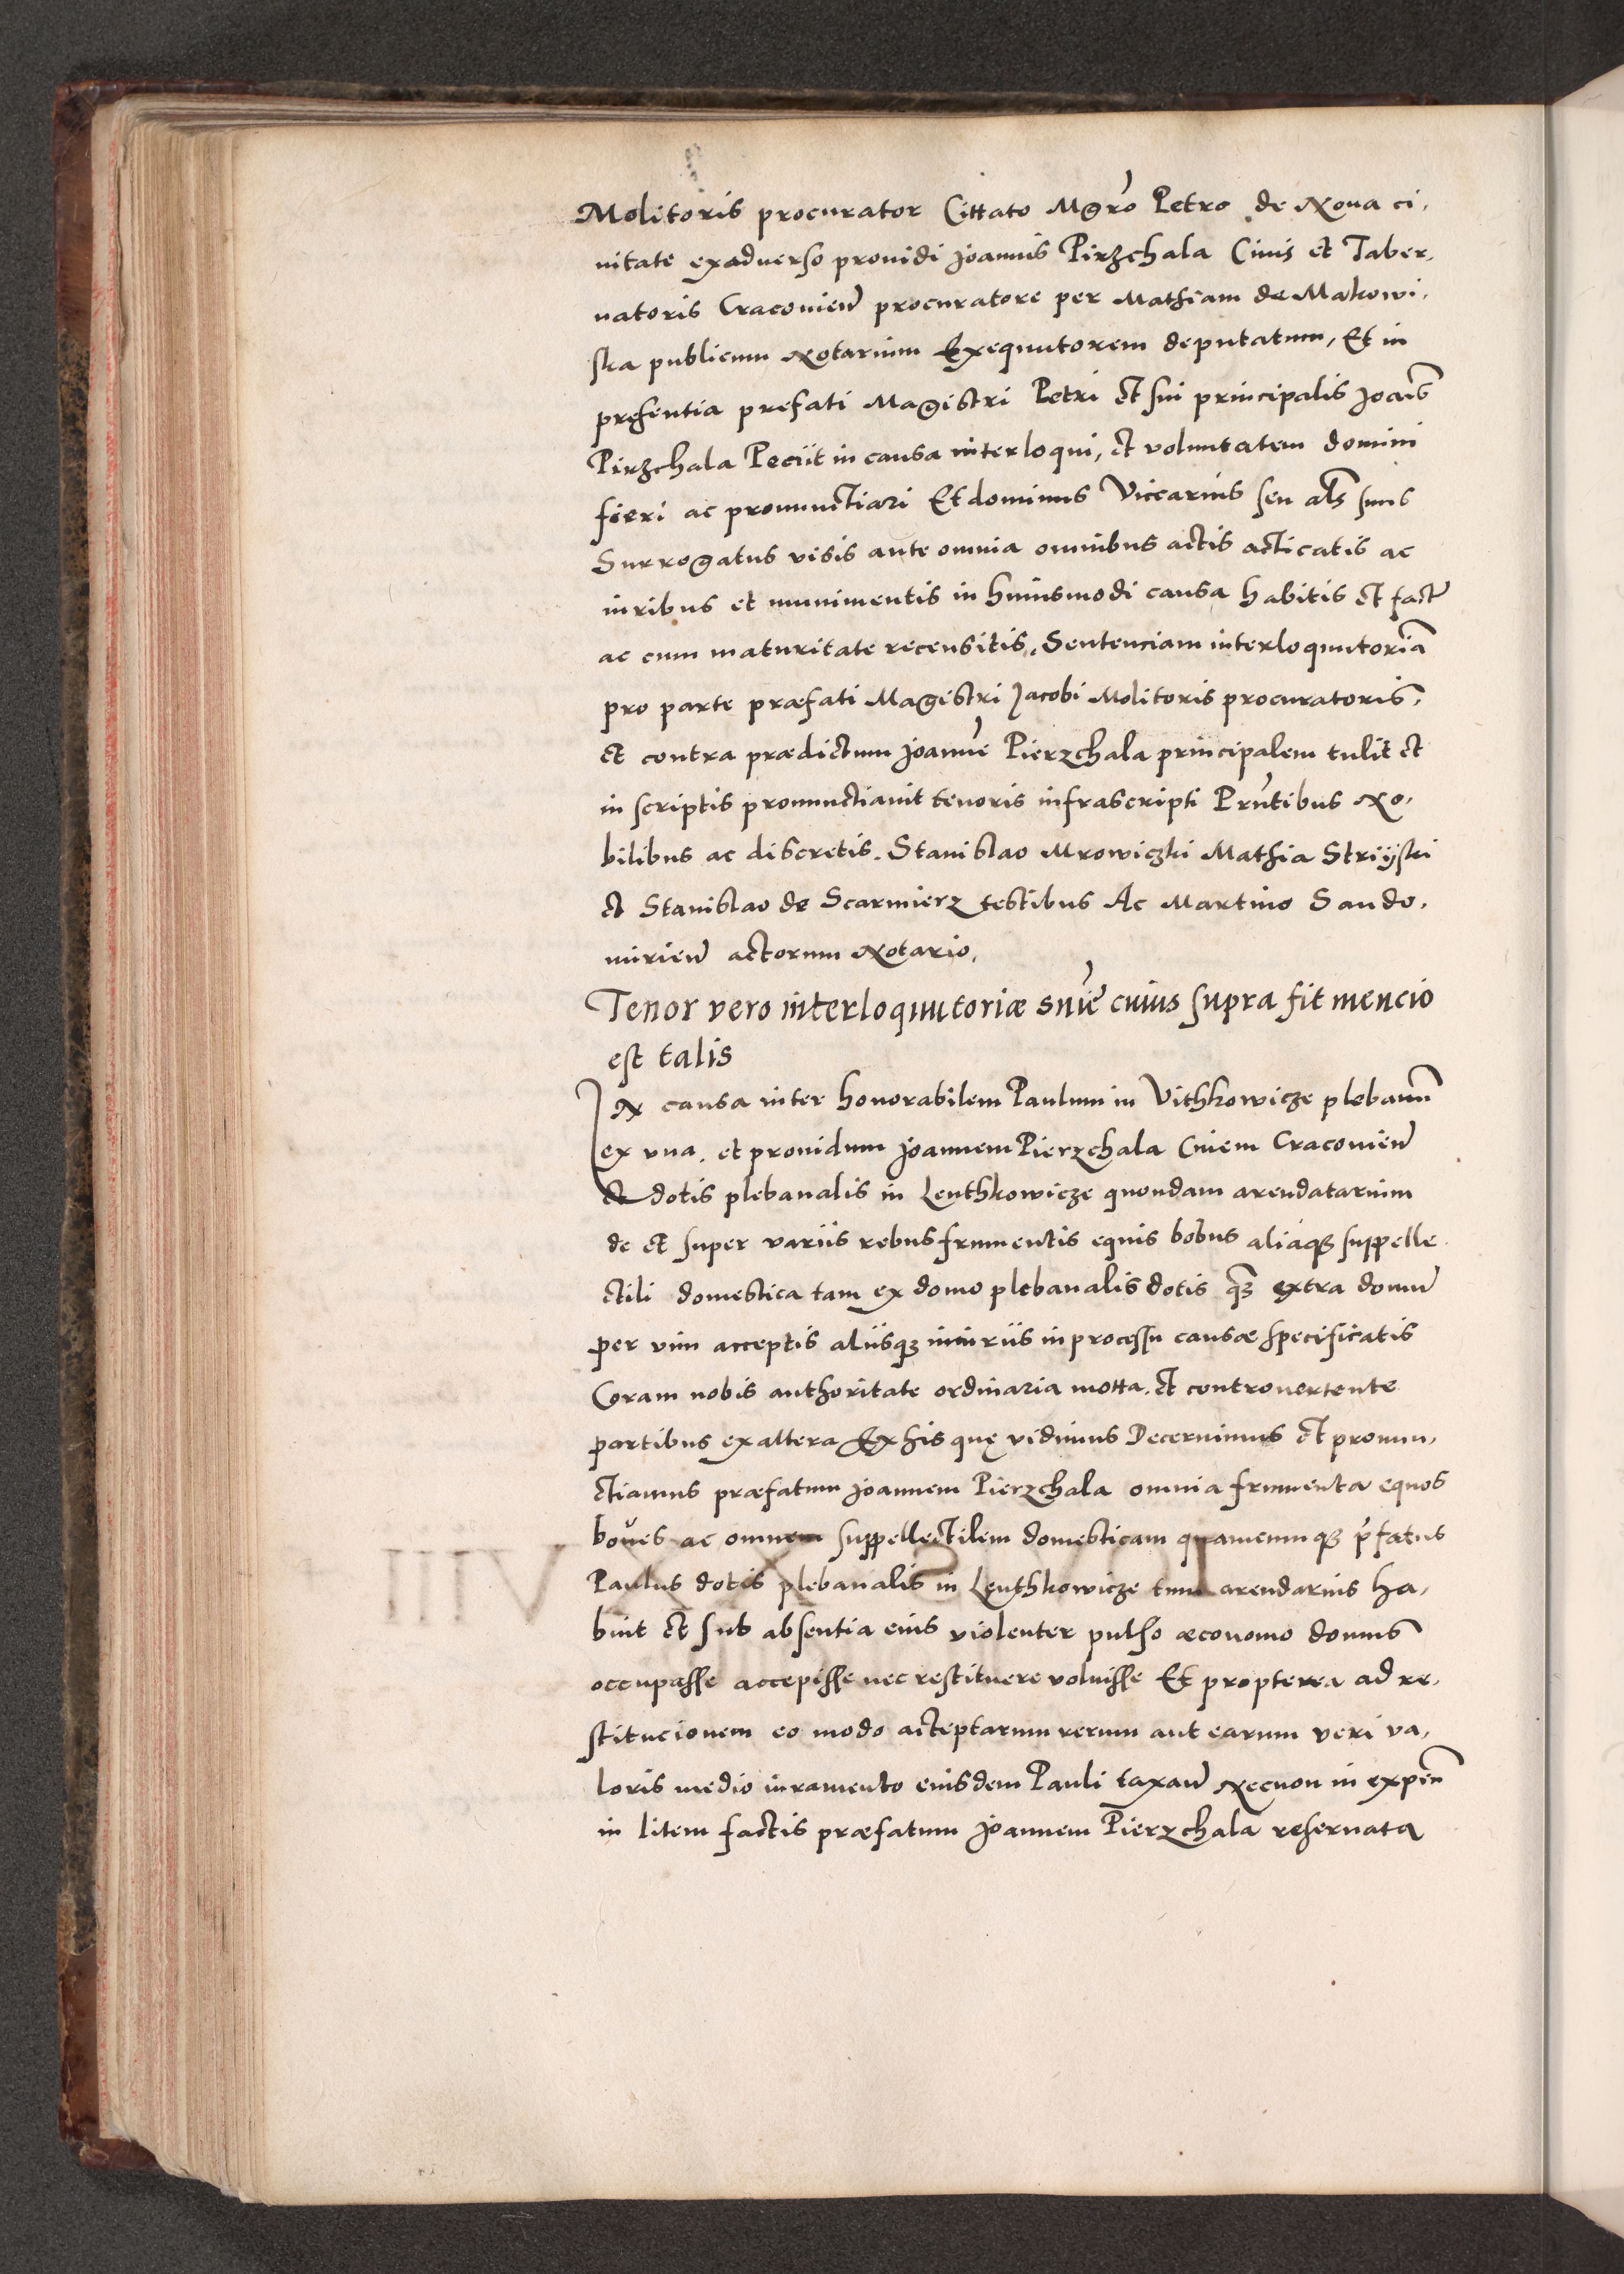 Molitoris procurator Cittato Mgro Petro de Noua ci,
uitate exaduerso prouidi Joannis Pirzchala Ciuis et Taber,
natoris Cracovien procuratore per Mathiam de Makowi,
ska publicum Notarium Exequutorem deputatum, Et in
presentia prefati Magistri Petri et sui principalis Joais
Pirzchala Peciit in causa interloqui, et voluntatem domini
fieri ac pronunctiari Et dominus Viccarius seu als suus
Surrogatus visis ante omnia omnibus actis acticatis ac
iuribus et munimentis in huiusmodi causa habitis et fact
ac cum maturitate recensitis. Sentenciam interloquutoria
pro parte præfati Magistri Jacobi Molitoris procuratoris,
et contra prædictum Joanne Pierzchala principalem tulit et
in scriptis pronunctiauit tenoris infrascripti Prntibus No,
bilibus ac discretis. Stanislao Mrowiczki Mathia Striyski
et Stanislao de Scarmierz testibus Ac Martino Sando,
mirien actorum Notario.
Tenor vero interloquutoriæ snie cuius supra fit mencio
est talis
IN causa inter honorabilem Paulum in Vithkowicze plebanu
ex vna. et prouidum Joannem Pierzchala Ciuem Cracovien
et dotis plebanalis in Lenthkowicze quondam arendatarium
de et super variis rebus frumentis equis bobus aliaq3 suppelle
ctili domestica tam ex domo plebanalis dotis q3 extra domu
per vim acceptis aliisq3 iniuriis in processu causæ specificatis
Coram nobis authoritate ordinaria motta. et controuertente
partibus ex altera Ex his quę vidimus Decernimus et pronun,
ctiamus præfatum Joannem Pierzchala omnia frumenta equos
boues ac omnem suppellectilem domesticam quamcumq3 pfatus
Paulus dotis plebanalis in Lenthkowicze tum arendarius ha,
buit et sub absentia eius violenter pulso æconomo domus
occupasse accepisse nec restituere voluisse Et propterea ad re,
stitucionem eo modo acceptarum rerum aut earum veri va,
loris medio iuramento eiusdem Pauli taxan Necnon in expen
in litem factis præfatum Joannem Pierzchala reseruata